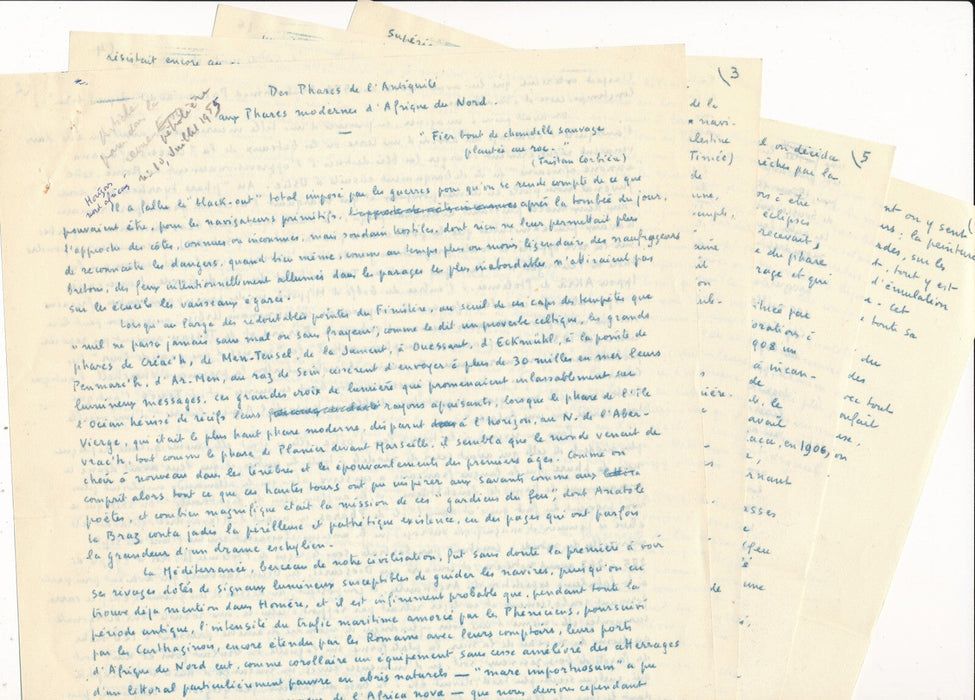 résistait encore au
Supérie
Des Phares de l'Antiquité
aux Phares modernes d'Afrique du Nord
—
"Fier bout de chandelle sauvage
plantée au roc."
(Tristan Corbière)
Article
paru dans la
revue
n° 10, Juillet 1955
Il a fallu le "black-out" total imposé par les guerres pour qu'on se rende compte de ce que
pouvaient être, pour les navigateurs primitifs, après la tombée du jour,
l'approche des côtes, connues ou inconnues, mais soudain hostiles, dont rien ne leur permettait plus
de reconnaître les dangers, quand bien même, comme au temps plus ou moins légendaire des naufrageurs
bretons, des feux intentionnellement allumés dans les parages les plus inabordables n'attiraient pas
sur les écueils les vaisseaux égarés.
Lorsqu'au large des redoutables pointes du Finistère, au seuil de ces caps des tempêtes que
"nul ne passa jamais sans mal ou sans frayeur", comme le dit un proverbe celtique, les grands
phares de Créac'h, de Men-Tensel, de la Jument, à Ouessant, d'Eckmühl, à la pointe de
Penmarc'h, d'Ar-Men, au raz de Sein cessèrent d'envoyer à plus de 30 milles en mer leurs
lumineux messages, ces grandes croix de lumière qui promenaient inlassablement sur
l'Océan hérissé de récifs leurs rayons apaisants, lorsque le phare de l'île
Vierge, qui était le plus haut phare moderne, disparut à l'horizon, au N. de l'Aber-
vrac'h, tout comme le phare de Planier devant Marseille, il sembla que le monde venait de
choir à nouveau dans les ténèbres et les épouvantements des premiers âges. Comme on
comprit alors tout ce que ces hautes tours ont pu inspirer aux savants comme aux
poètes, et combien magnifique était la mission de ces "gardiens du feu", dont Anatole
le Braz conta jadis la périlleuse et pathétique existence, en des pages qui ont parfois
la grandeur d'un drame eschylien.
La Méditerranée, berceau de notre civilisation, fut sans doute la première à voir
ses rivages dotés de signaux lumineux susceptibles de guider les navires, puisqu'on en
trouve déjà mention dans Homère, et il est infiniment probable que, pendant toute la
période antique, l'intensité du trafic maritime amorcé par les Phéniciens, poursuivi
par les Carthaginois, encore étendu par les Romains avec leurs comptoirs, leurs ports
d'Afrique du Nord eut, comme corollaire un équipement sans cesse amélioré des atterrages
d'un littoral particulièrement pauvre en abris naturels — "mare importuosum" a pu
de l'Africa nova — que nous devons cependant
3
de la
navi-
de
5
on décida
par la
être
éclipses
recevait,
du phare
et qui
à
908 un
à incan-
de
le
avait
en 1906, on
une
nt on y sent
la peinture
sur les
tout y est
d'émulation
cet
toute sa
du
des
tout